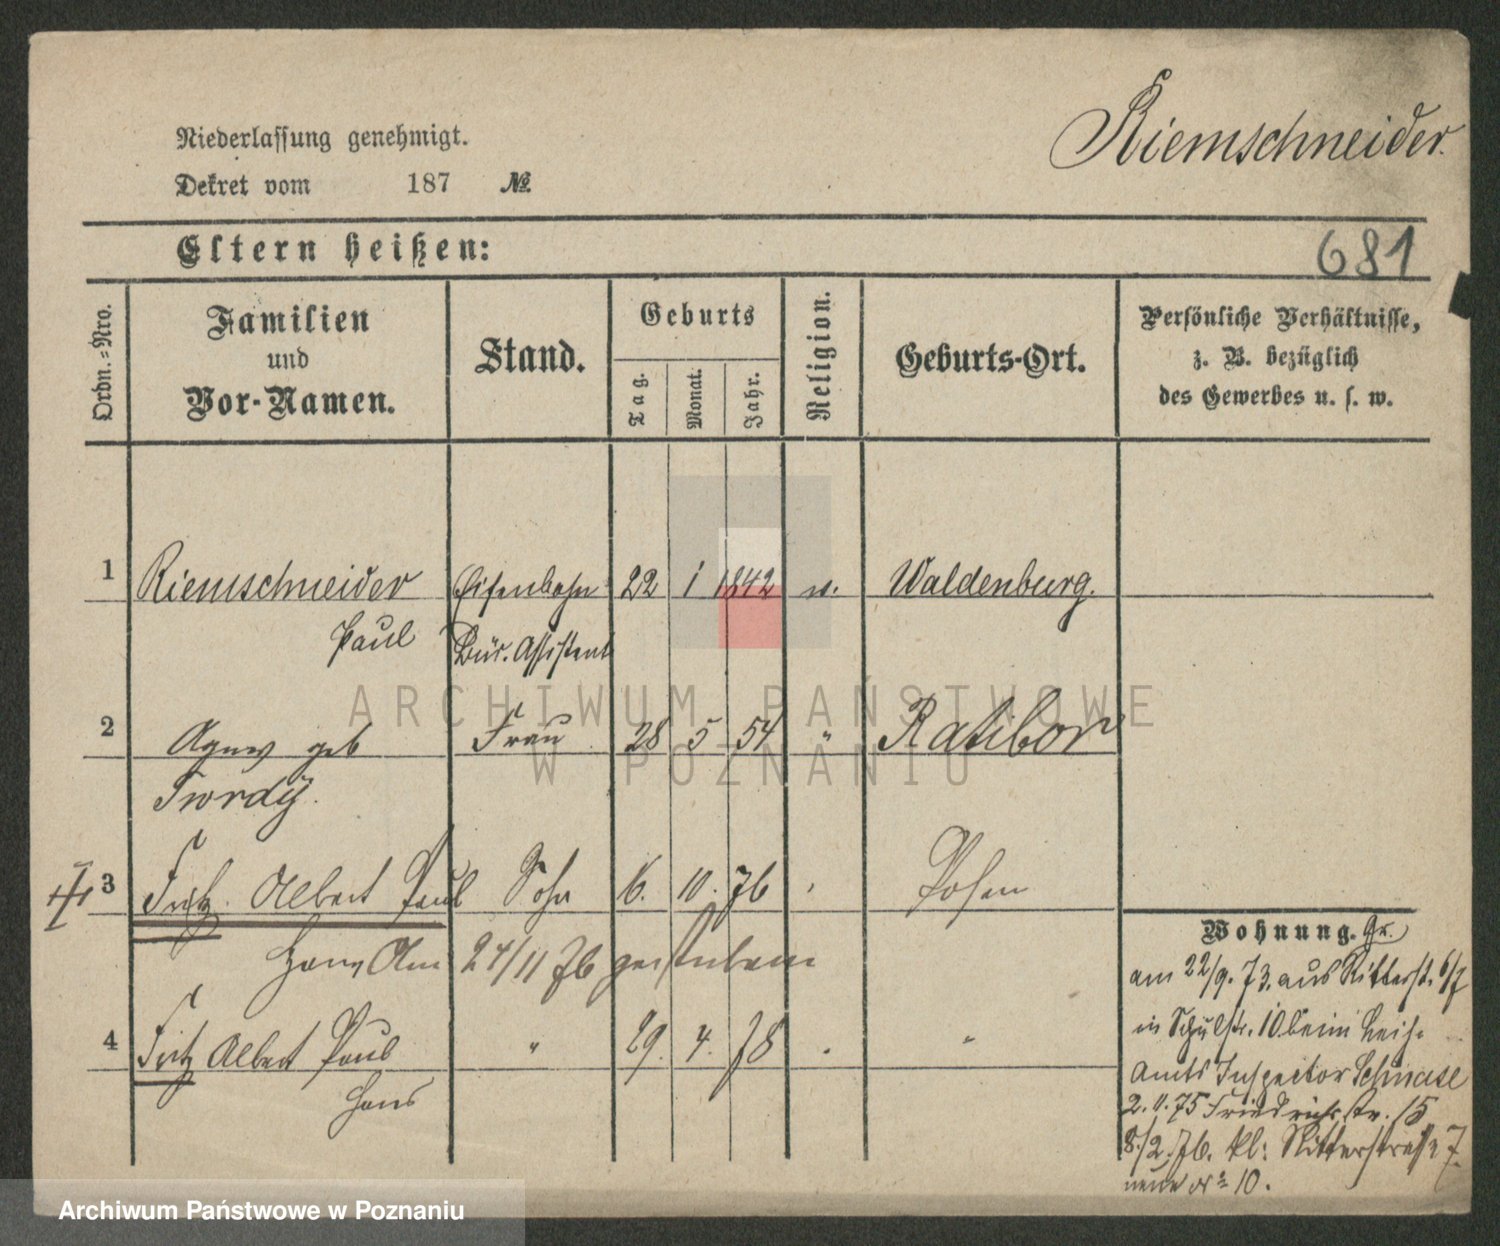 Riemschneider.
Niederlassung genehmigt.
Dekret vom 187 №
Eltern heißen:
681
Ordn.-Nro.
Familien
und
Vor-Namen.
Stand.
Geburts
Tag.
Monat.
Jahr.
Religion.
Geburts-Ort.
Persönliche Verhältnisse,
z. B. bezüglich
des Gewerbes u. s. w.
1 Riemschneider Eisenbahn 22 1 1842 Waldenburg.
Paul Bür. Assistent
2 Agnes geb Frau 28 5 54 " Ratibor
Twordÿ.
3 Fritz Albert Paul Sohn 6. 10. 76 Posen
Hans Am 24/11 76 gestorben
4 Fritz Albert Paul " 29. 4. 78 "
Hans
Wohnung. Gr.
am 22/9. 73. aus Ritterst. 6/7
in Schulstr. 10 beim Leih-
Amts Inspector Schmase
75 Friedrichstr. 15
8/2. 76. kl: Ritterstraße 7
neue № 10.
ARCHIWUM PAŃSTWOWE
W POZNANIU
Archiwum Państwowe w Poznaniu